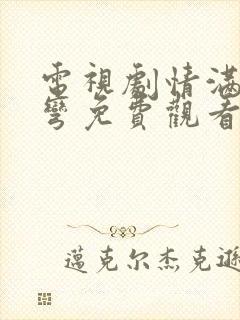 電視劇情滿
彎免費觀看
邁克尔杰克遜